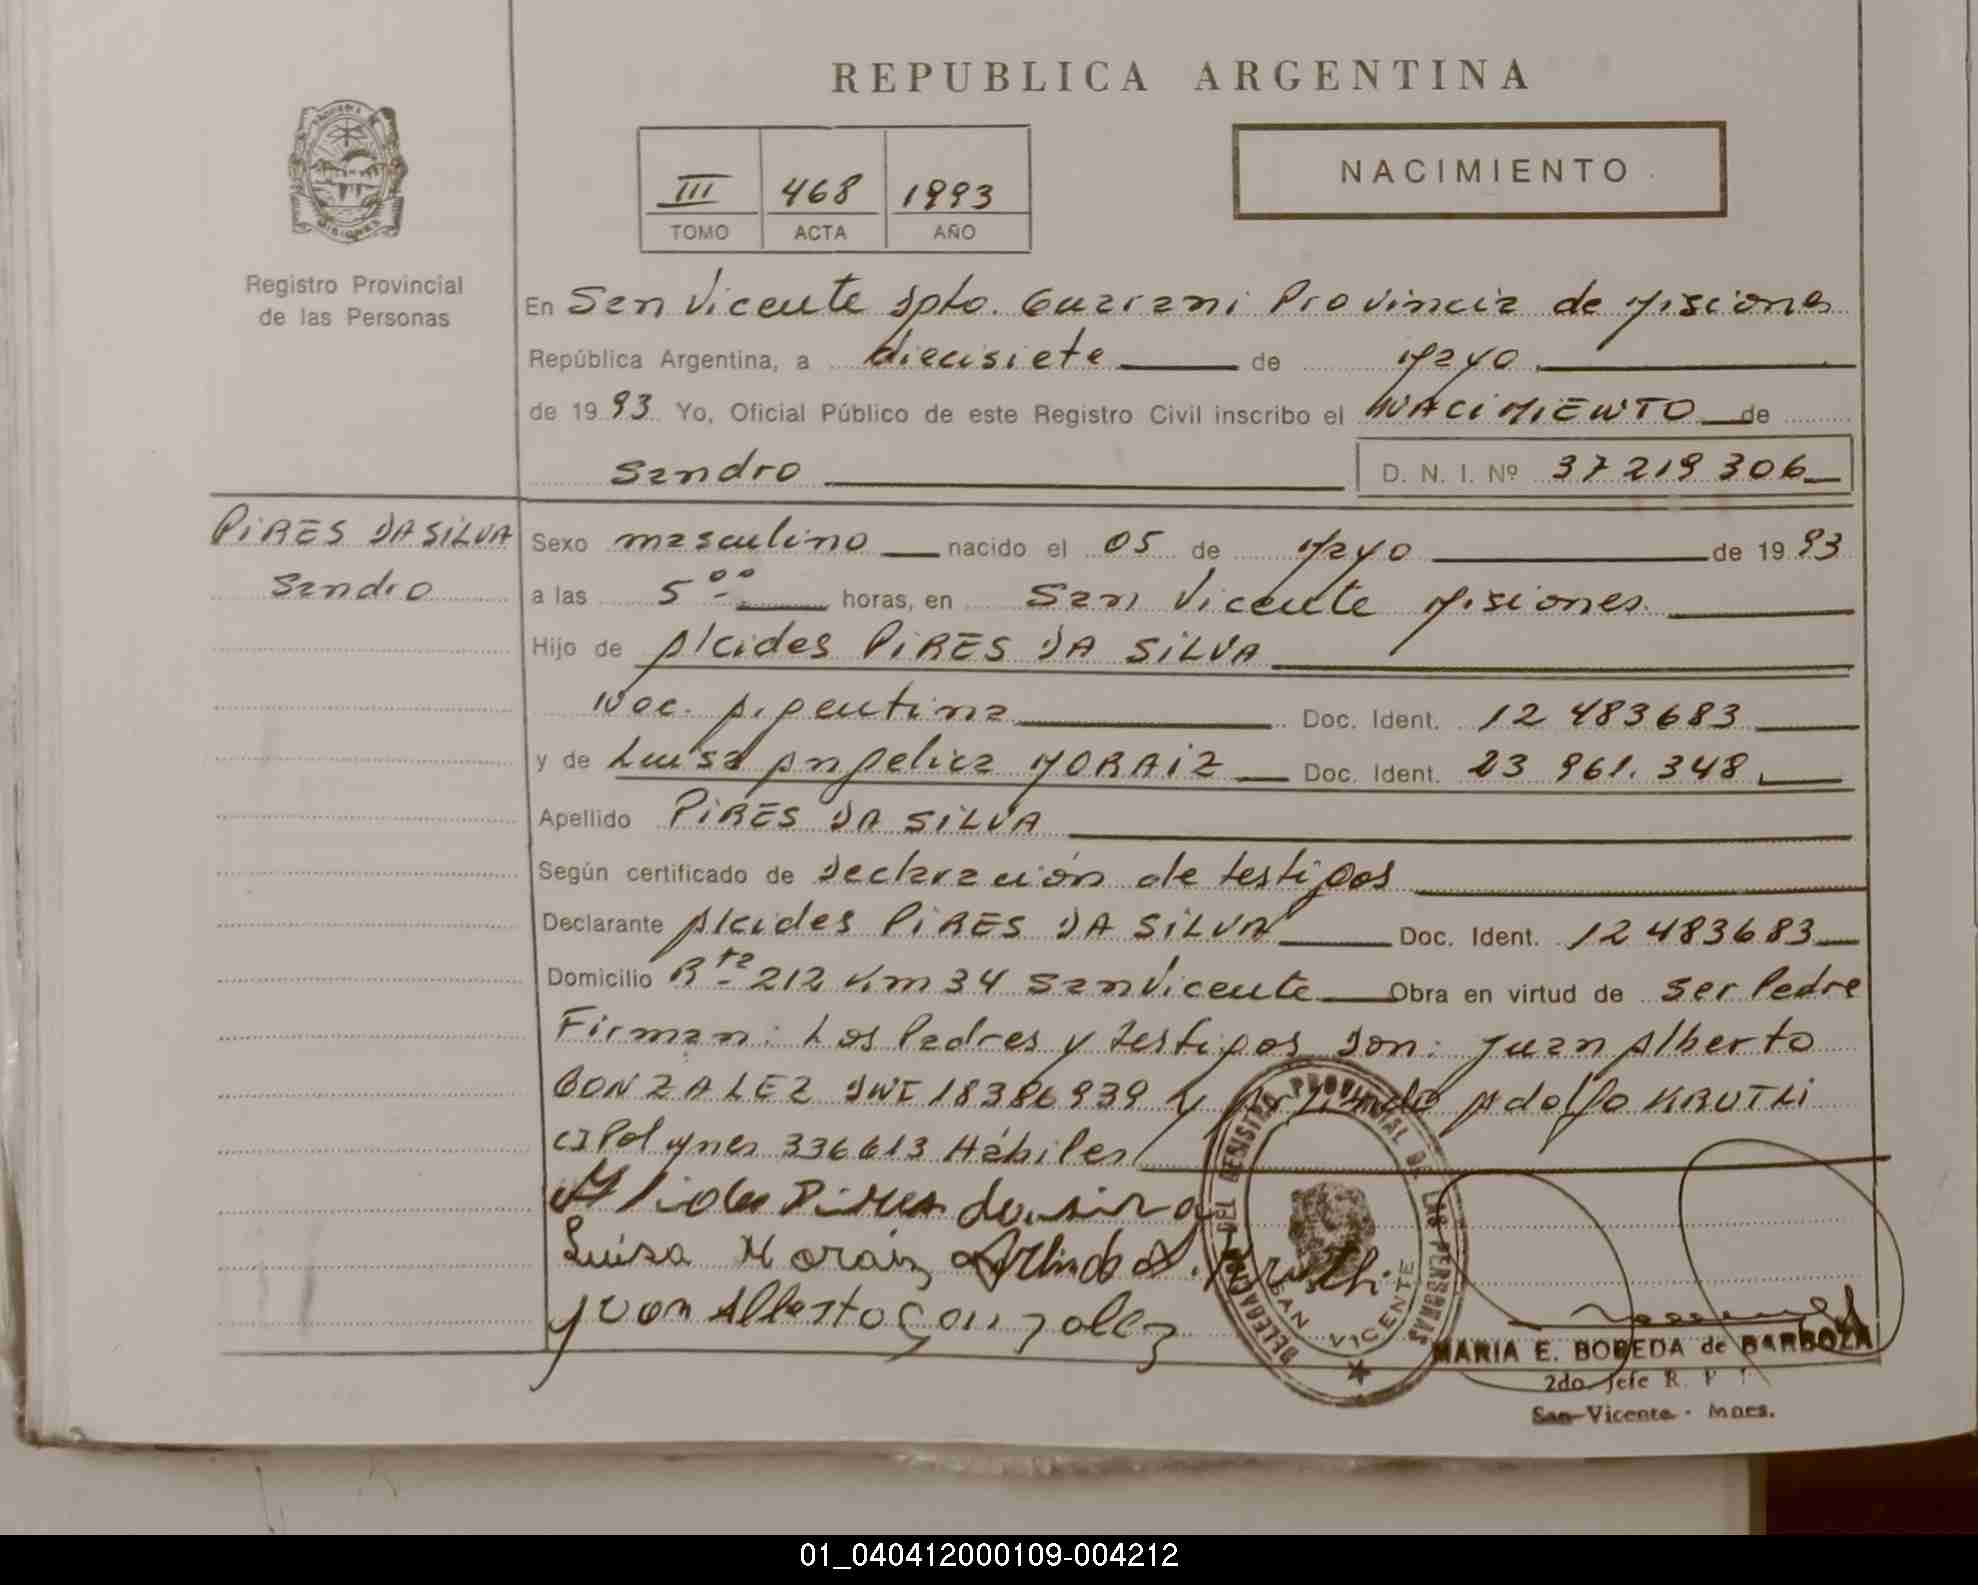 REPUBLICA ARGENTINA
NACIMIENTO
III 468 1993
TOMO ACTA AÑO
Registro Provincial
de las Personas
En San Vicente Dpto. Guarani Provincia de Misiones
República Argentina, a diecisiete de Mayo
de 1993 Yo, Oficial Público de este Registro Civil inscribo el NACIMIENTO de
Sandro D. N. I. Nº 37219306
PIRES DA SILVA
Sandro
Sexo masculino nacido el 05 de Mayo de 1993
a las 5 00 horas, en San Vicente Misiones
Hijo de Alcides PIRES DA SILVA
Nac. Argentina Doc. Ident. 12 483683
y de Luisa Angelica MORAIZ Doc. Ident. 23 961.348
Apellido PIRES DA SILVA
Según certificado de Declaración de testigos
Declarante Alcides PIRES DA SILVA Doc. Ident. 12483683
Domicilio Rta 212 Km 34 San Vicente Obra en virtud de ser Padre
Firman: Los Padres y testigos Don: Juan Alberto
GONZALEZ DNI 18386939 y Arlindo Adolfo KRUTLI
CI Pol Mnes 336613 Hábiles
Alcides Pires da silva
Luisa Moraiz Arlindo A. Krutli
Juan Alberto Gonzalez
DELEGACION DEL REGISTRO PROVINCIAL DE LAS PERSONAS
SAN VICENTE
MARIA E. BOBEDA de BARBOZA
2do. Jefe R. P.
San Vicente - Mnes.
01_040412000109-004212